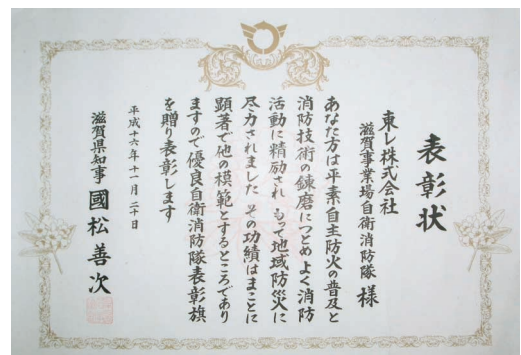 表彰状
東レ株式会社
滋賀事業場自衛消防隊 様
あなた方は平素自主防火の普及と
消防技術の錬磨につとめ よく消防
活動に精励され もって地域防災に
尽力されました その功績はまことに
顕著で他の模範とするところであり
ますので優良自衛消防隊表彰旗
を贈り表彰します
平成十六年十一月二十日
滋賀県知事 國松善次